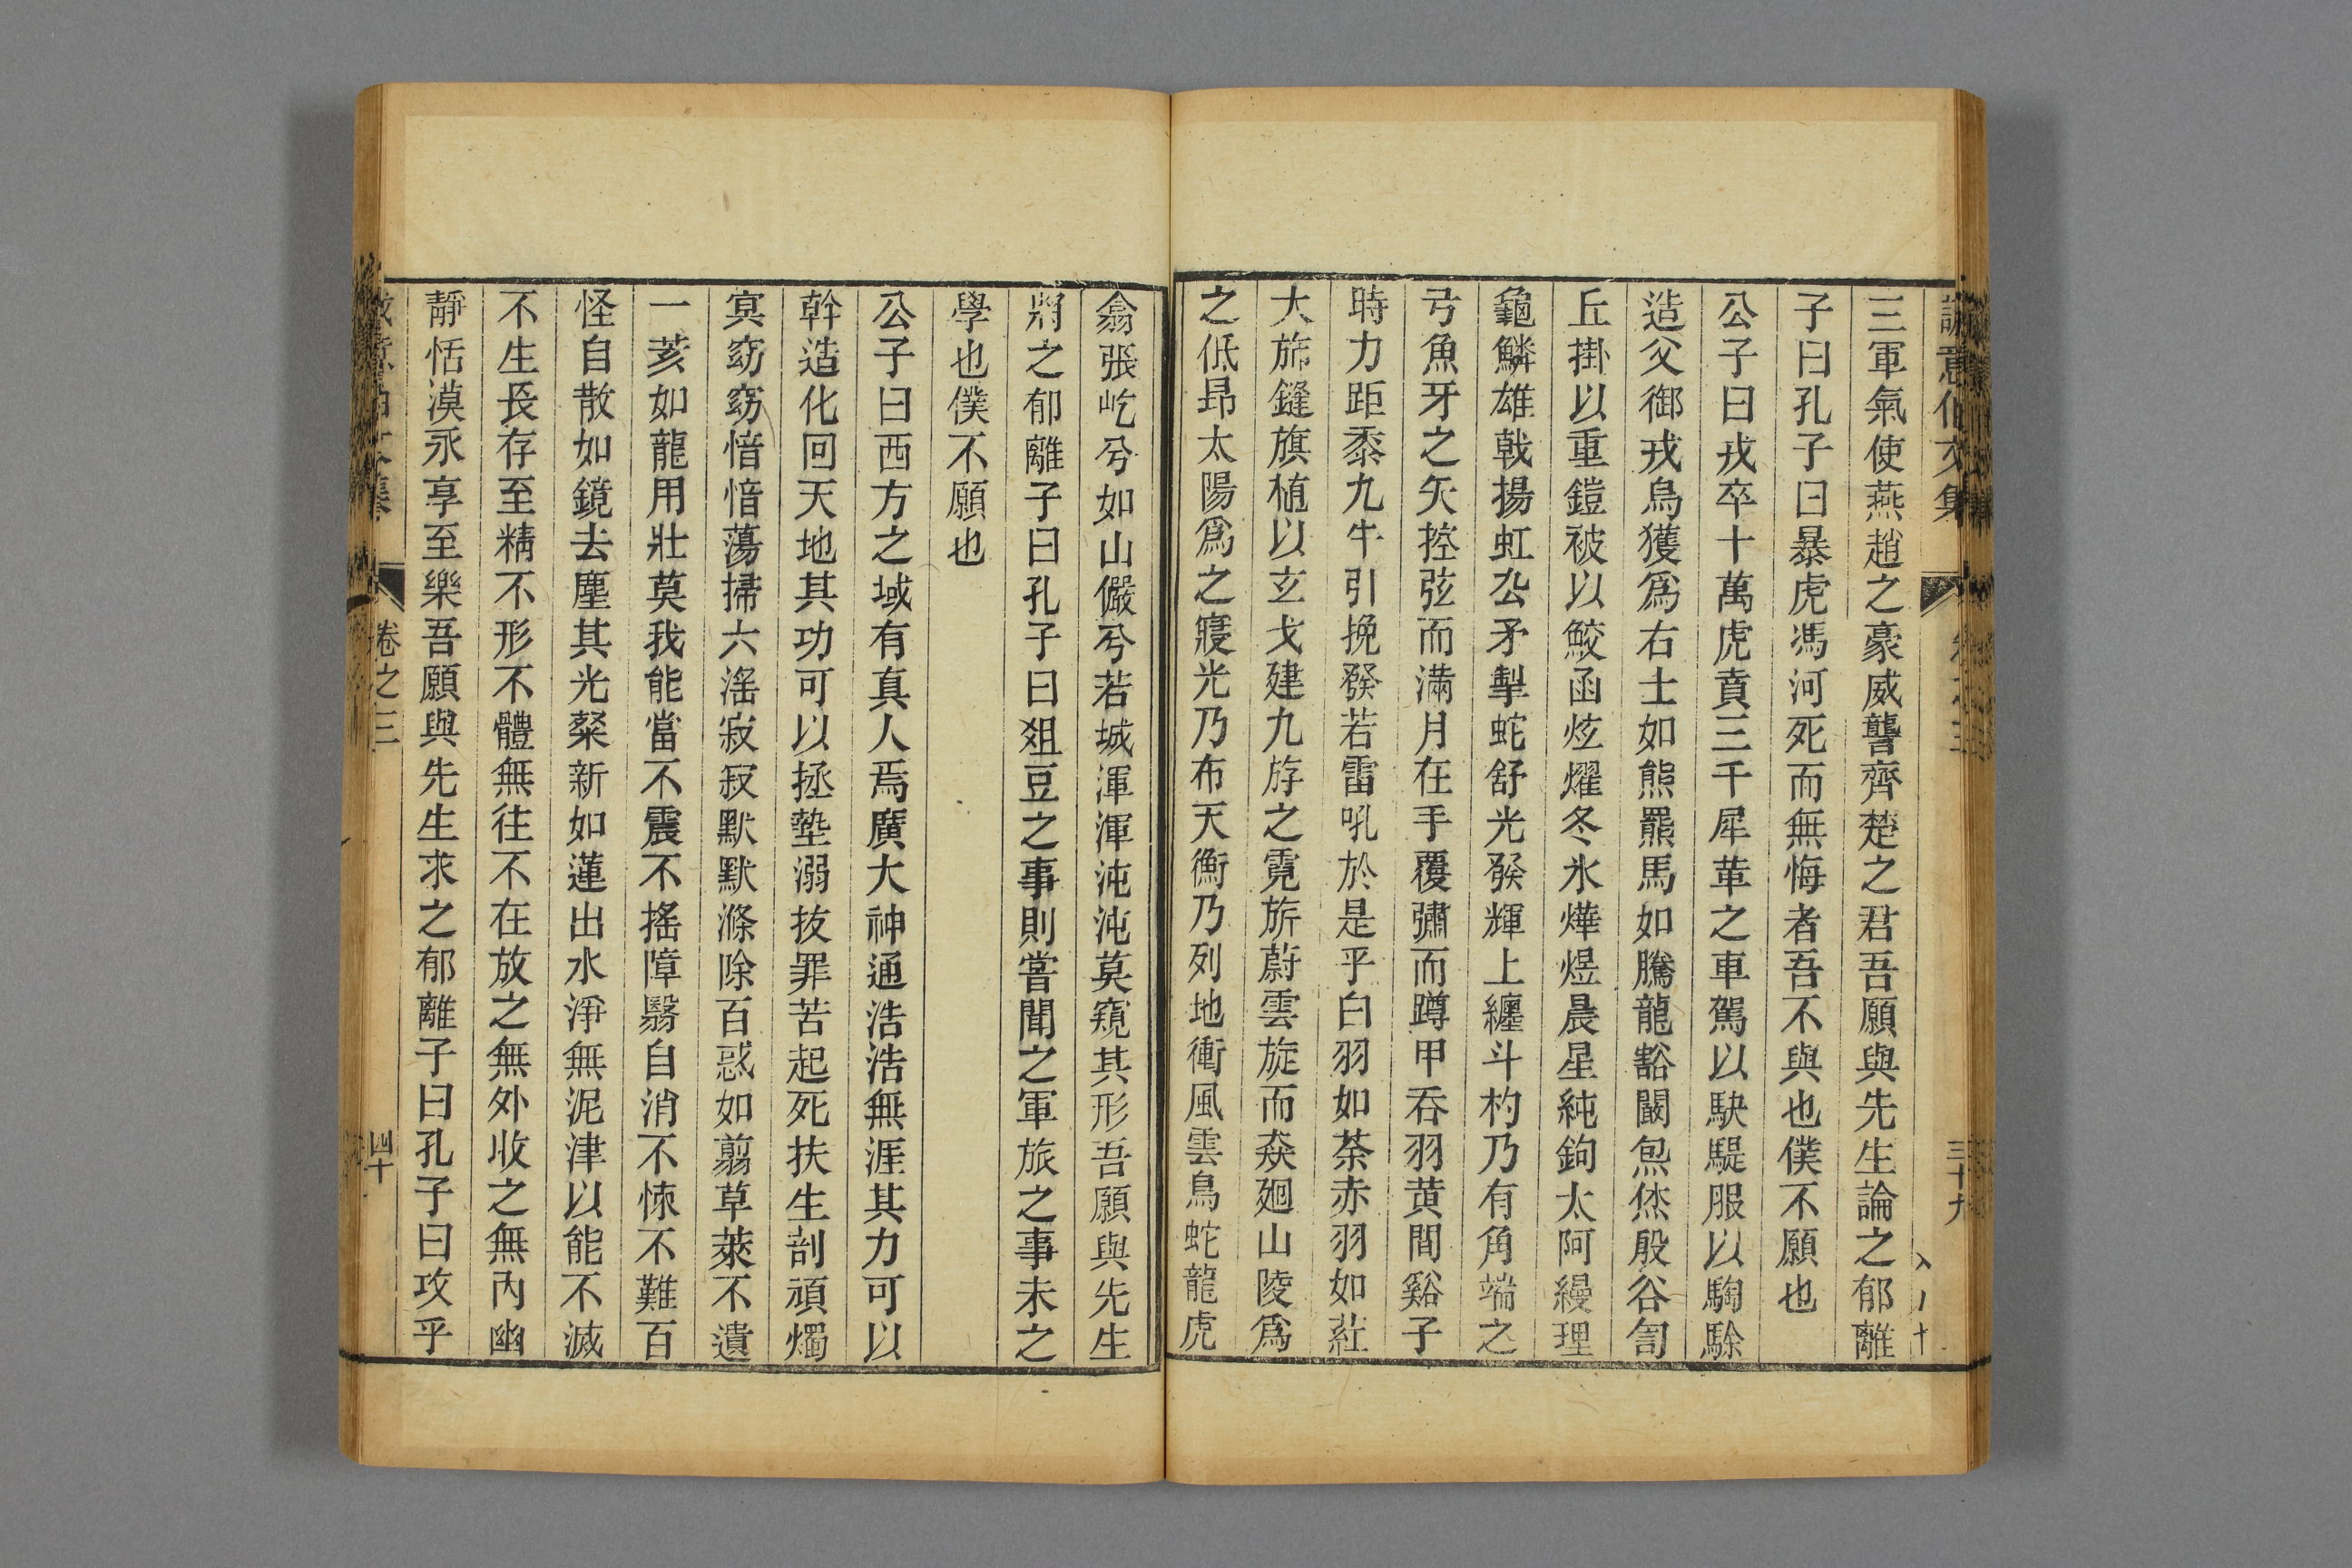 誠意伯文集
卷之三
三十九
三軍氣使燕趙之豪威讋齊楚之君吾願與先生論之郁離
子曰孔子曰暴虎馮河死而無悔者吾不與也僕不願也
公子曰戎卒十萬虎賁三千犀革之車駕以駃騠服以騊駼
造父御戎烏獲爲右士如熊羆馬如騰龍豁闞炰烋殷谷訇
丘掛以重鎧被以鮫函炫燿冬氷燁煜晨星純鉤太阿縵理
龜鱗雄戟揚虹厹矛掣蛇舒光發輝上纏斗杓乃有角端之
弓魚牙之矢控弦而滿月在手覆彇而蹲甲吞羽黄間谿子
時力距黍九牛引挽發若雷吼於是乎白羽如荼赤羽如菈
大斾鏠旗植以玄戈建九斿之霓旂蔚雲旋而猋廻山陵爲
之低昂太陽爲之寢光乃布天衡乃列地衝風雲鳥蛇龍虎
翕張屹兮如山儼兮若城渾渾沌沌莫窺其形吾願與先生
將之郁離子曰孔子曰爼豆之事則嘗聞之軍旅之事未之
學也僕不願也
公子曰西方之域有真人焉廣大神通浩浩無涯其力可以
幹造化回天地其功可以拯墊溺抜罪苦起死扶生剖頑燭
冥窈窈愔愔蕩掃六滛寂寂默默滌除百惑如翦草萊不遺
一荄如龍用壯莫我能當不震不搖障翳自消不悚不難百
怪自散如鏡去塵其光粲新如蓮出水淨無泥津以能不滅
不生長存至精不形不體無往不在放之無外收之無內幽
靜恬漠永享至樂吾願與先生求之郁離子曰孔子曰攻乎
卷之三
四十